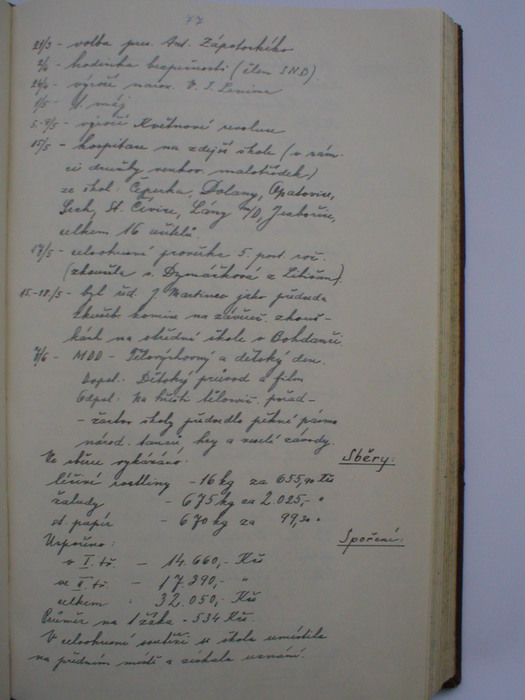 77
21/3 - volba pres. Ant. Zápotockého
2/4 - hodinka bezpečnosti (člen SNB)
24/4 - výročí naroz. V. I. Lenina
1/5 - 1. máj
5.-9/5 - výročí Květnové revoluce
15/5 - hospitace na zdejší škole (v rám-
ci družby venkov. malotřídek)
ze škol: Čeperka, Dolany, Opatovice,
Sech, St. Čivice, Lány n/D, Jezbořice,
celkem 16 učitelů.
17/5 - celookresní prověrka 5. post. roč.
(zkoušela s. Dymáčková z Libišan).
15.-18./5 - byl úd. J. Martinec jako předseda
zkušeb. komise na závěreč. zkouš-
kách na střední škole v Bohdanči.
7/6 - MDD - Tělovýchovný a dětský den.
Dopol. Dětský průvod a film
Odpol. Na hřišti tělovič. pořad -
- žactvo školy předvedlo pěkné pásmo
národ. tanců, hry a veselé závody.
Sběry:
Ve sběru vykázáno:
léčivé rostliny - 16 kg za 655,90 Kčs
žaludy - 675 kg za 2.025,- "
st. papír - 670 kg za 99,30 "
Spoření:
Uspořeno:
v I. tř. - 14.660,- Kčs
ve II. tř. - 17.390,- "
celkem 32.050,- Kčs
Průměr na 1 žáka - 534 Kčs.
V celookresní soutěži se škola umístila
na předním místě a získala uznání.